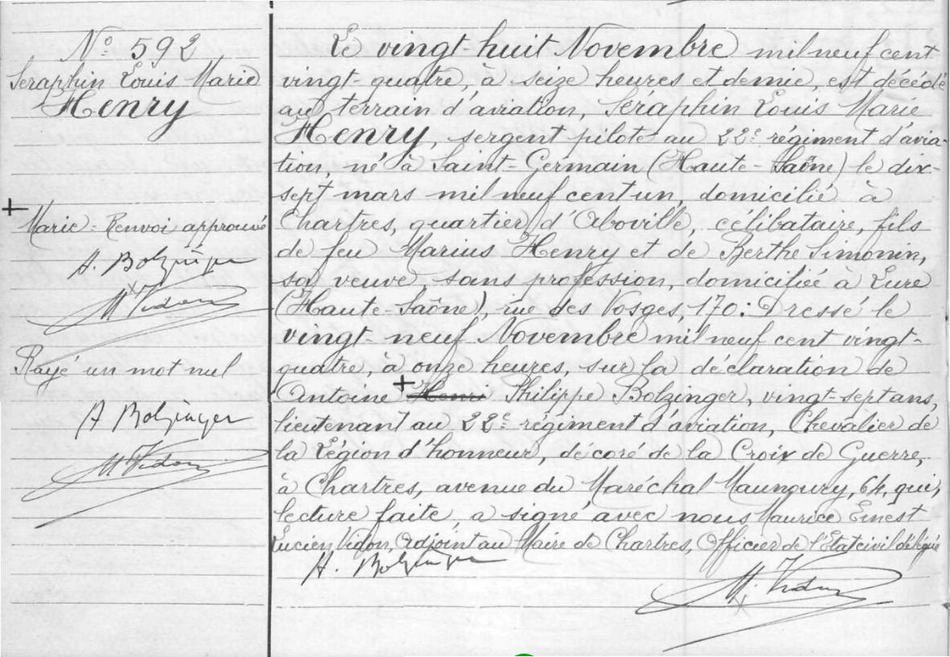 N° 592
Seraphin Louis Marie
Henry
+
Marie : Renvoi approuvé
A. Bolzinger
M Vidon
Rayé un mot nul
A Bolzinger
M Vidon
Le vingt-huit Novembre mil neuf cent
vingt-quatre, à seize heures et demie, est décédé
au terrain d'aviation, Seraphin Louis Marie
Henry, sergent pilote au 22e régiment d'avia-
tion, né à Saint-Germain (Haute-Saône) le dix-
sept mars mil neuf cent un, domicilié à
Chartres, quartier d'Aboville, célibataire, fils
de feu Marius Henry et de Berthe Simonin,
sa veuve, sans profession, domiciliée à Lure
(Haute-Saône), rue des Vosges, 170 : Dressé le
vingt-neuf Novembre mil neuf cent vingt-
quatre, à onze heures, sur la déclaration de
Antoine + Henri Philippe Bolzinger, vingt-sept ans,
lieutenant au 22e régiment d'aviation, Chevalier de
la Légion d'honneur, décoré de la Croix de Guerre,
à Chartres, avenue du Maréchal Maunoury, 64, qui,
lecture faite, a signé avec nous Maurice Ernest
Lucien Vidon, Adjoint au Maire de Chartres, Officier de l'Etat civil délégué
A. Bolzinger
M. Vidon